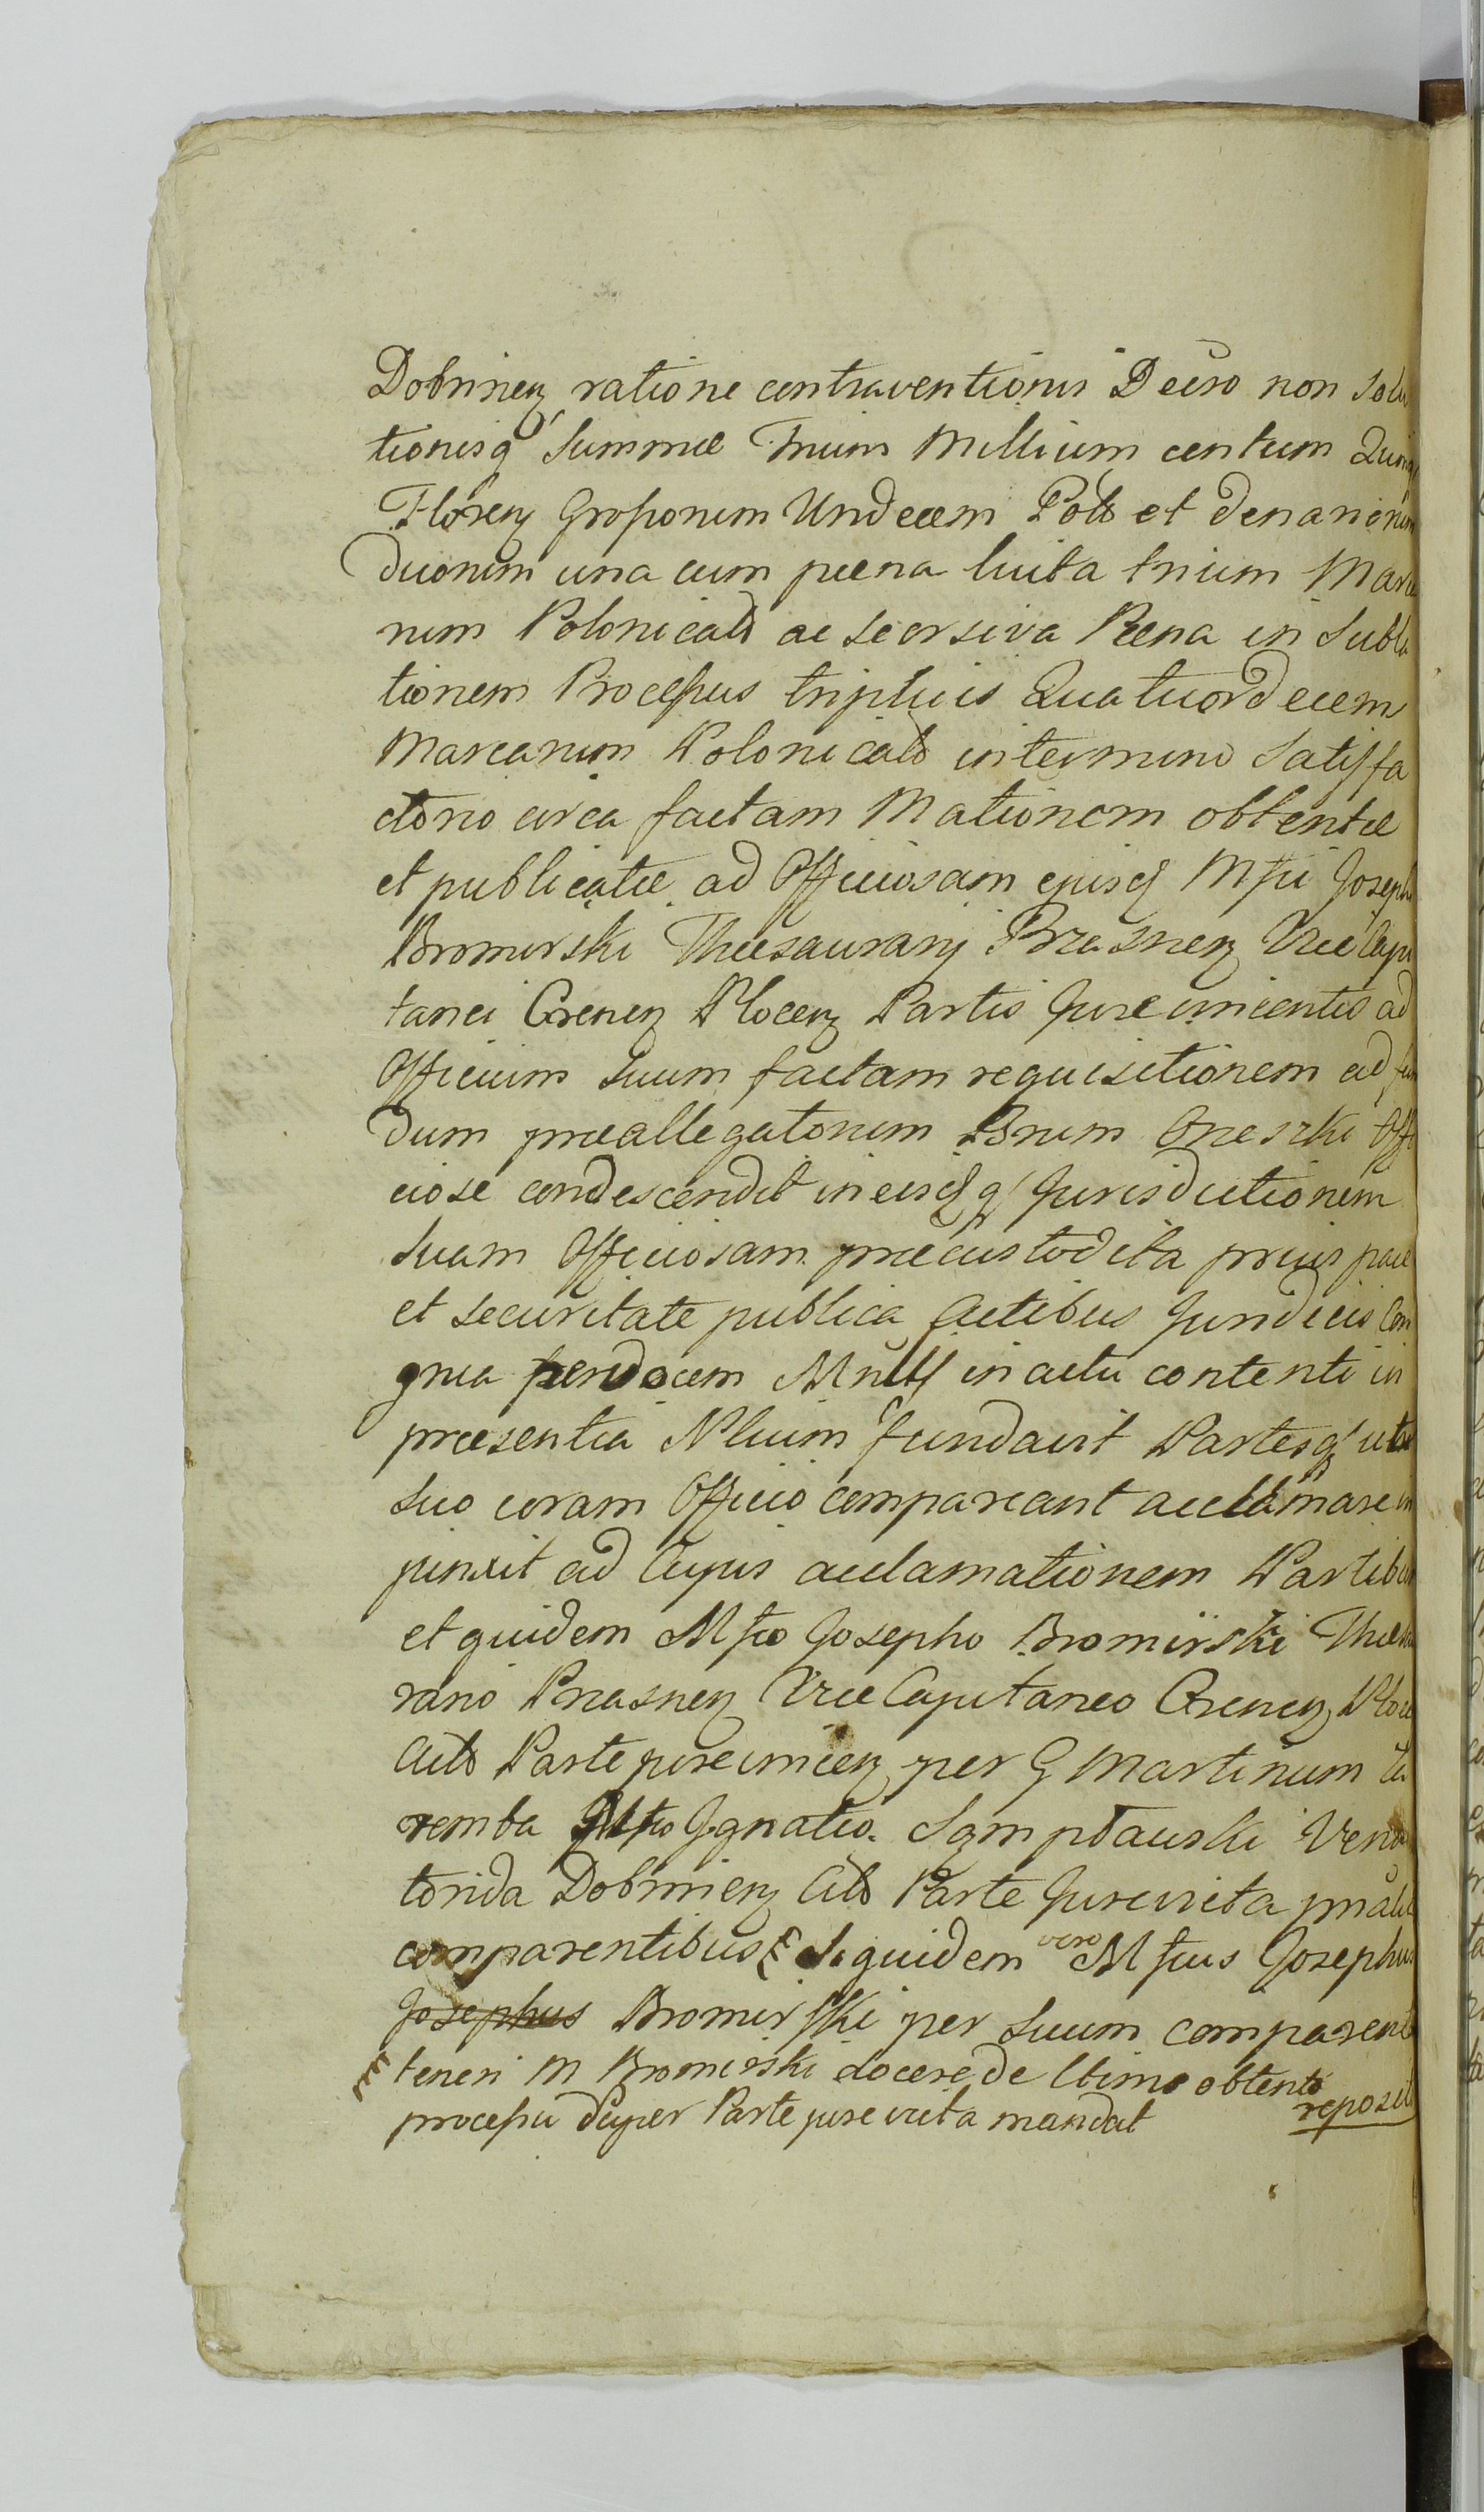 Dobrinen ratione contraventionis Decro non Solu
tionisq Summæ Trium Millium centum Quinq
Floren Grossorum Undecem Pols et denariorum
duorum una cum pæna luita trium Marca
rum Polonicals ac seorsiva Pæna in Subla
tionem Processus triplicis Quatuordecem
Marcarum Polonicals intermino Satisfa
ctorio circa factam Mationem obtentæ
et publicatæ ad Officiosam ejusd Mfci Josephi
Bromirski Thæsaurarij Prasnen Vice Capi
tanei Grenen Plocen Partis Jurevincentis ad
Officium Suum factam requisitionem ad fun
dum præallegatorum Bnrum Orzeszki Offi
ciose condescendit ineisdq Jurisdictionem
Suam Officiosam præcustodita prius pace
et securitate publica Actibus Juridicis Con
grua pendocem in actu contenti in
præsentia Nlium fundavit Partesq uts
suo coram Officio compareant acclamare in
junxit ad Cujus acclamationem Partibus
et quidem Mfco Josepho Bromirski Thæsau
rario Prasnen Vice Capitaneo Grenen Ploce
Acts Parte jurevincen per G Martinum Za
remba Mfco Ignatio Venα
torida Dobrinen Cits Parte Jurevicta pnalit
comparentibus Siquidem vero Mfcus Josephus
Josephus Bromirski per Suum comparent
teneri M Bromirski docere de ltimo obtento
processu super Parte jure victa mandat
reposit